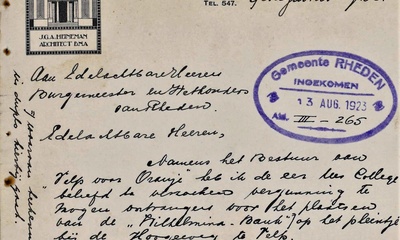 TEL. 547.
J.G.A. HEINEMAN
ARCHITECT B.N.A.
Gemeente RHEDEN
INGEKOMEN
13 AUG. 1923
III-265
Aan Edelachtbare Heeren
Burgemeester en Wethouders
van Rheden.
Edelachtbare Heeren,
Namens het Bestuur van
"Velp voor Oranje" heb ik de eer Uw College
beleefd te verzoeken vergunning te
mogen ontvangen voor het plaatsen
van de "Wilhelmina-Bank" op het pleintje
bij de Hoogeweg te Velp